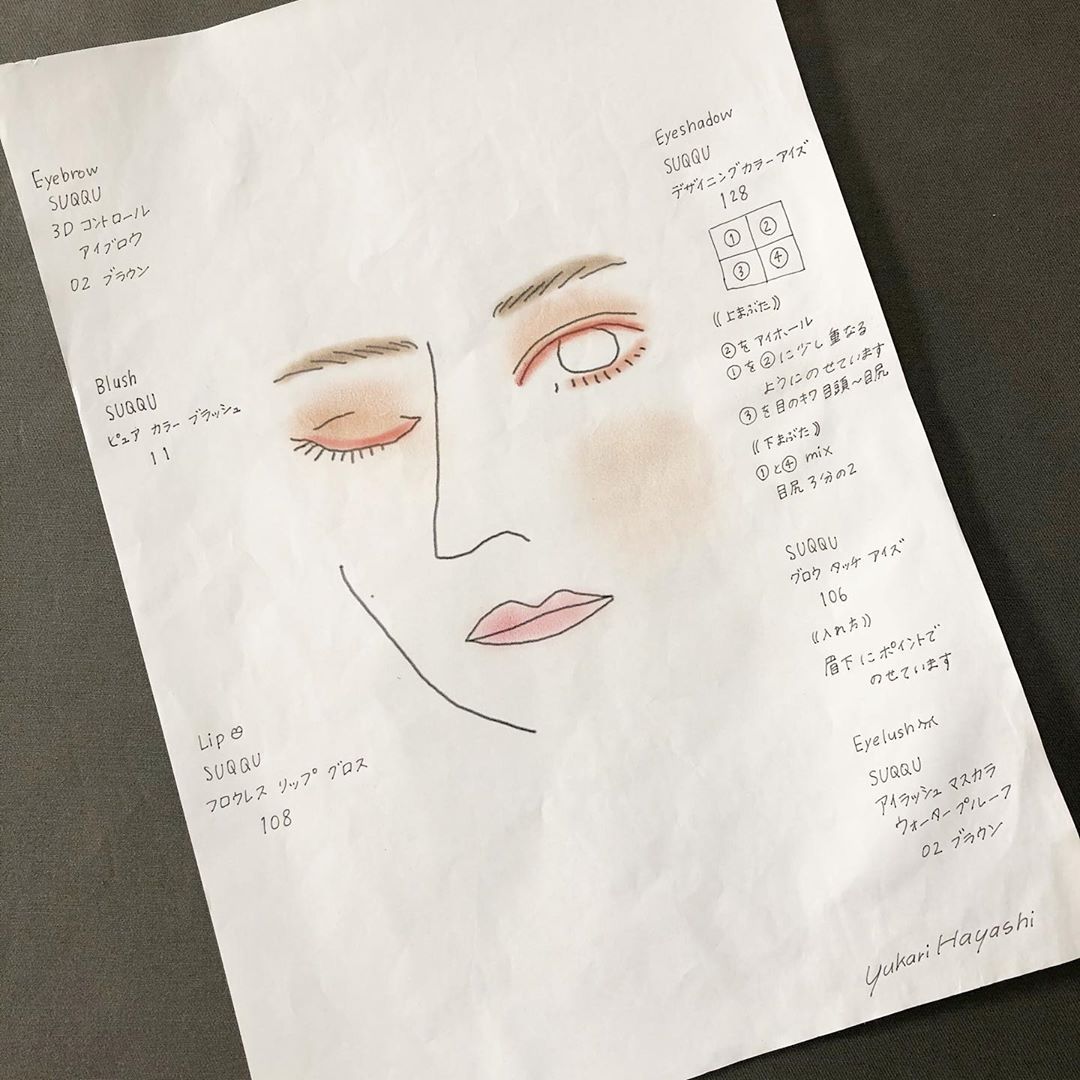 Eyebrow
SUQQU
3D コントロール
アイブロウ
02 ブラウン
Blush
SUQQU
ピュア カラー ブラッシュ
11
Lip
SUQQU
フロウレス リップ グロス
108
Eyeshadow
SUQQU
デザイニングカラーアイズ
128
① ②
③ ④
《上まぶた》
②をアイホール
①を②に少し重なる
ようにのせています
③を目のキワ 目頭〜目尻
《下まぶた》
①と④ mix
目尻3分の2
SUQQU
グロウ タッチ アイズ
106
《入れ方》
眉下にポイントで
のせています
Eyelush
SUQQU
アイラッシュ マスカラ
ウォータープルーフ
02 ブラウン
Yukari Hayashi